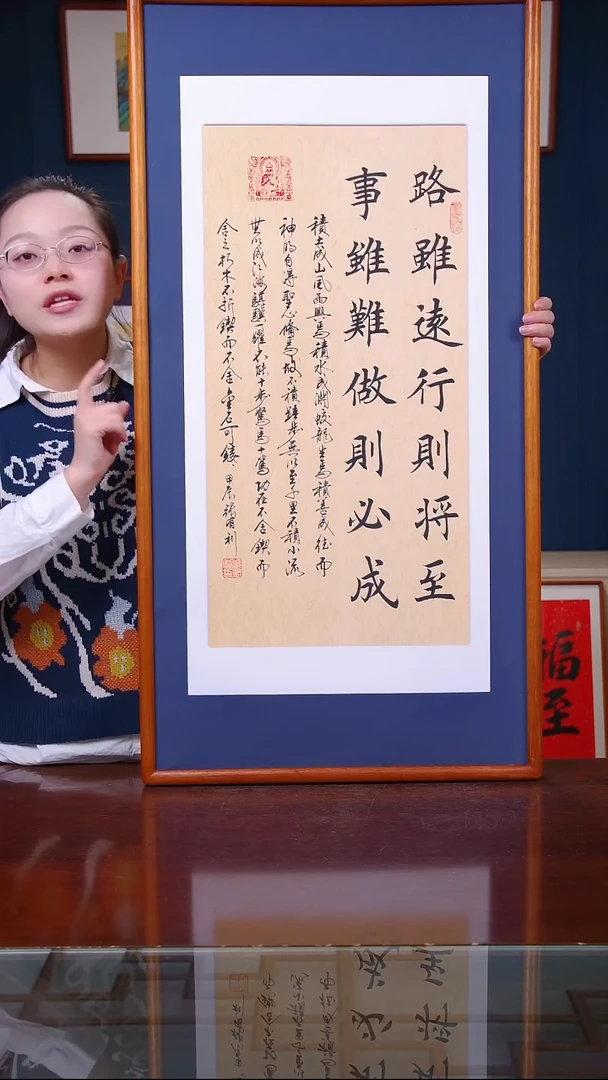 路雖遠行則将至
事雖難做則必成
積土成山風雨興焉積水成淵蛟龍生焉積善成德而
神明自得聖心備焉故不積跬步無以至千里不積小流
無以成江海騏驥一躍不能十步駑馬十駕功在不舍鍥而
舍之朽木不折鍥而不舍金石可鏤 甲辰張 利
福至